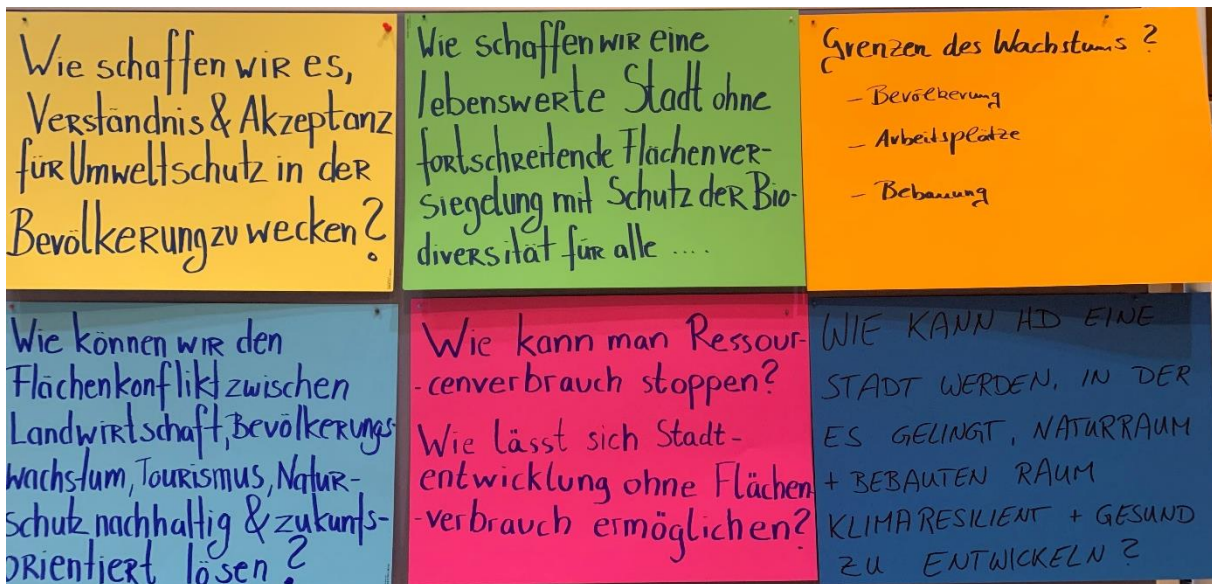 Wie schaffen wir es,
Verständnis & Akzeptanz
für Umweltschutz in der
Bevölkerung zu wecken?
Wie schaffen wir eine
lebenswerte Stadt ohne
fortschreitende Flächenver-
siegelung mit Schutz der Bio-
diversität für alle ....
Grenzen des Wachstums ?
- Bevölkerung
- Arbeitsplätze
- Bebauung
Wie können wir den
Flächenkonflikt zwischen
Landwirtschaft, Bevölkerungs-
wachstum, Tourismus, Natur-
schutz nachhaltig & zukunfts-
orientiert lösen ?
Wie kann man Ressour-
-cenverbrauch stoppen?
Wie lässt sich Stadt-
entwicklung ohne Flächen
-verbrauch ermöglichen?
WIE KANN HD EINE
STADT WERDEN, IN DER
ES GELINGT, NATURRAUM
+ BEBAUTEN RAUM
KLIMARESILIENT + GESUND
ZU ENTWICKELN ?